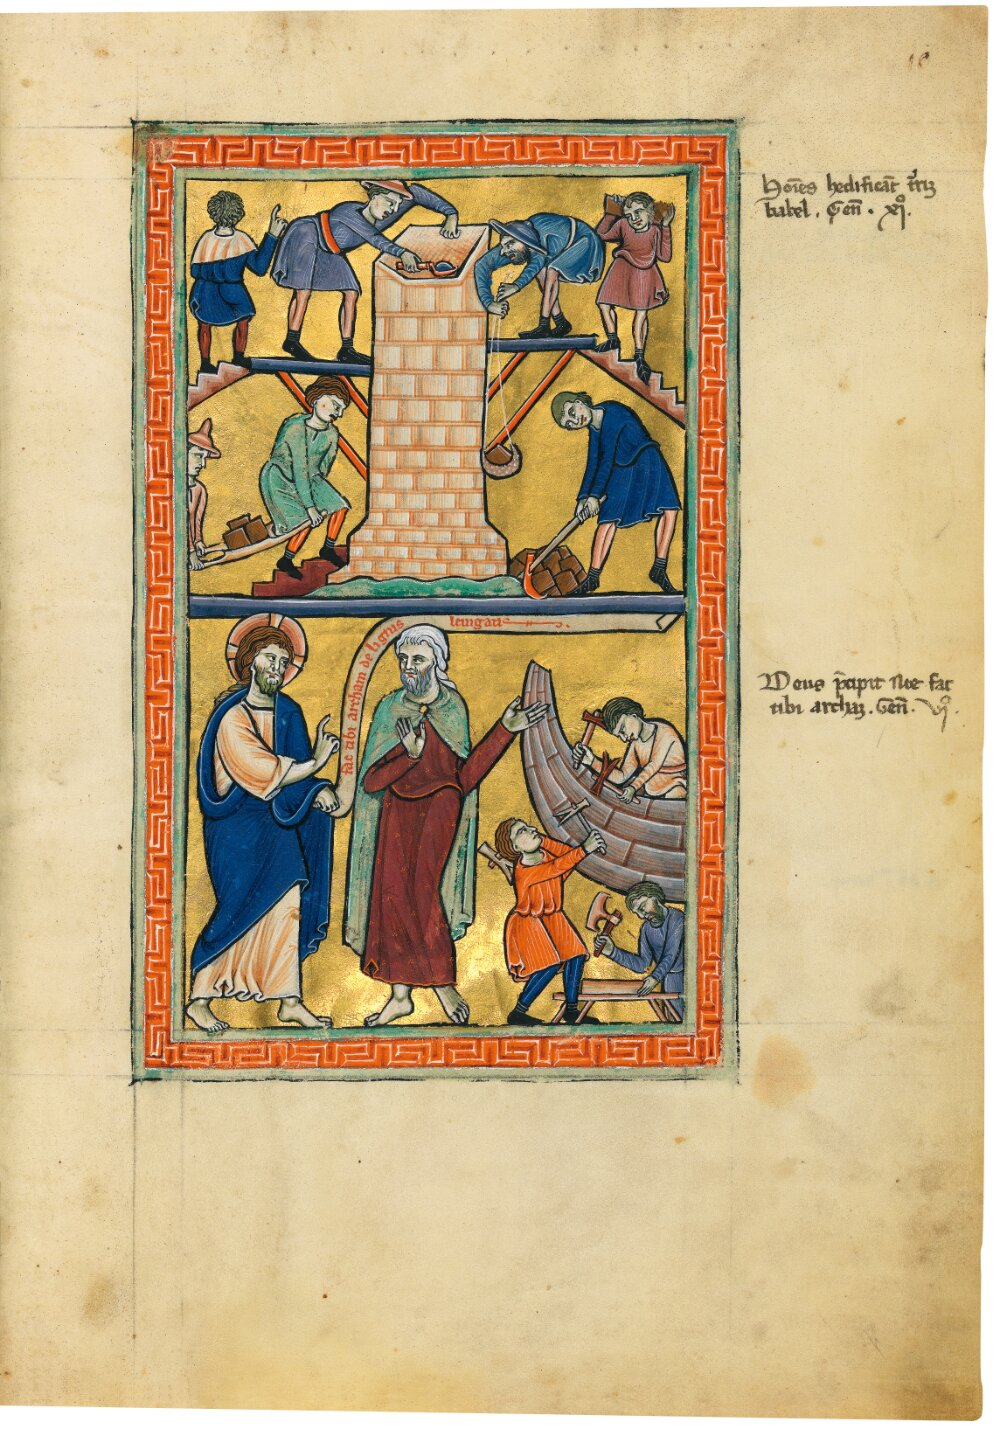 Hoīes hedificāt t̉rīȝ
babel. Gen̄. xiͦ.
fac tibi archam de lignis
leuigatis
Deus p̄cipit Noe fac
tibi archaȝ. Gen̄. viͦ.